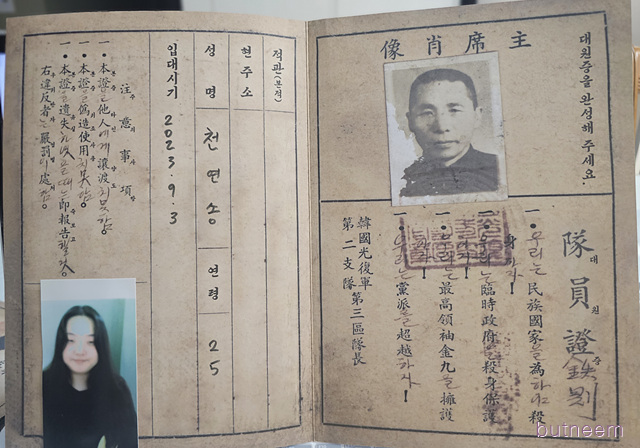 대원증을 완성해 주세요.
主席肖像
隊員證
대원증
一・우리는 民族國家를 為하야 殺身하자!
一・우리는 臨時政府를 殺身保護
一・우리는 最高領袖金九를 擁護
一・우리는 黨派를 超越하자!
韓國光復軍
第二支隊 第三區隊長
적관(본적)
현주소
성명 천연송 연령 25
입대시기 2023.9.3
注意事項
一・本證을 他人에게 讓渡치못함
一・本證을 偽造使用치못함
一・本證을 遺失 때는 即報告할것
右違反者는 嚴罰에 處함
butneem